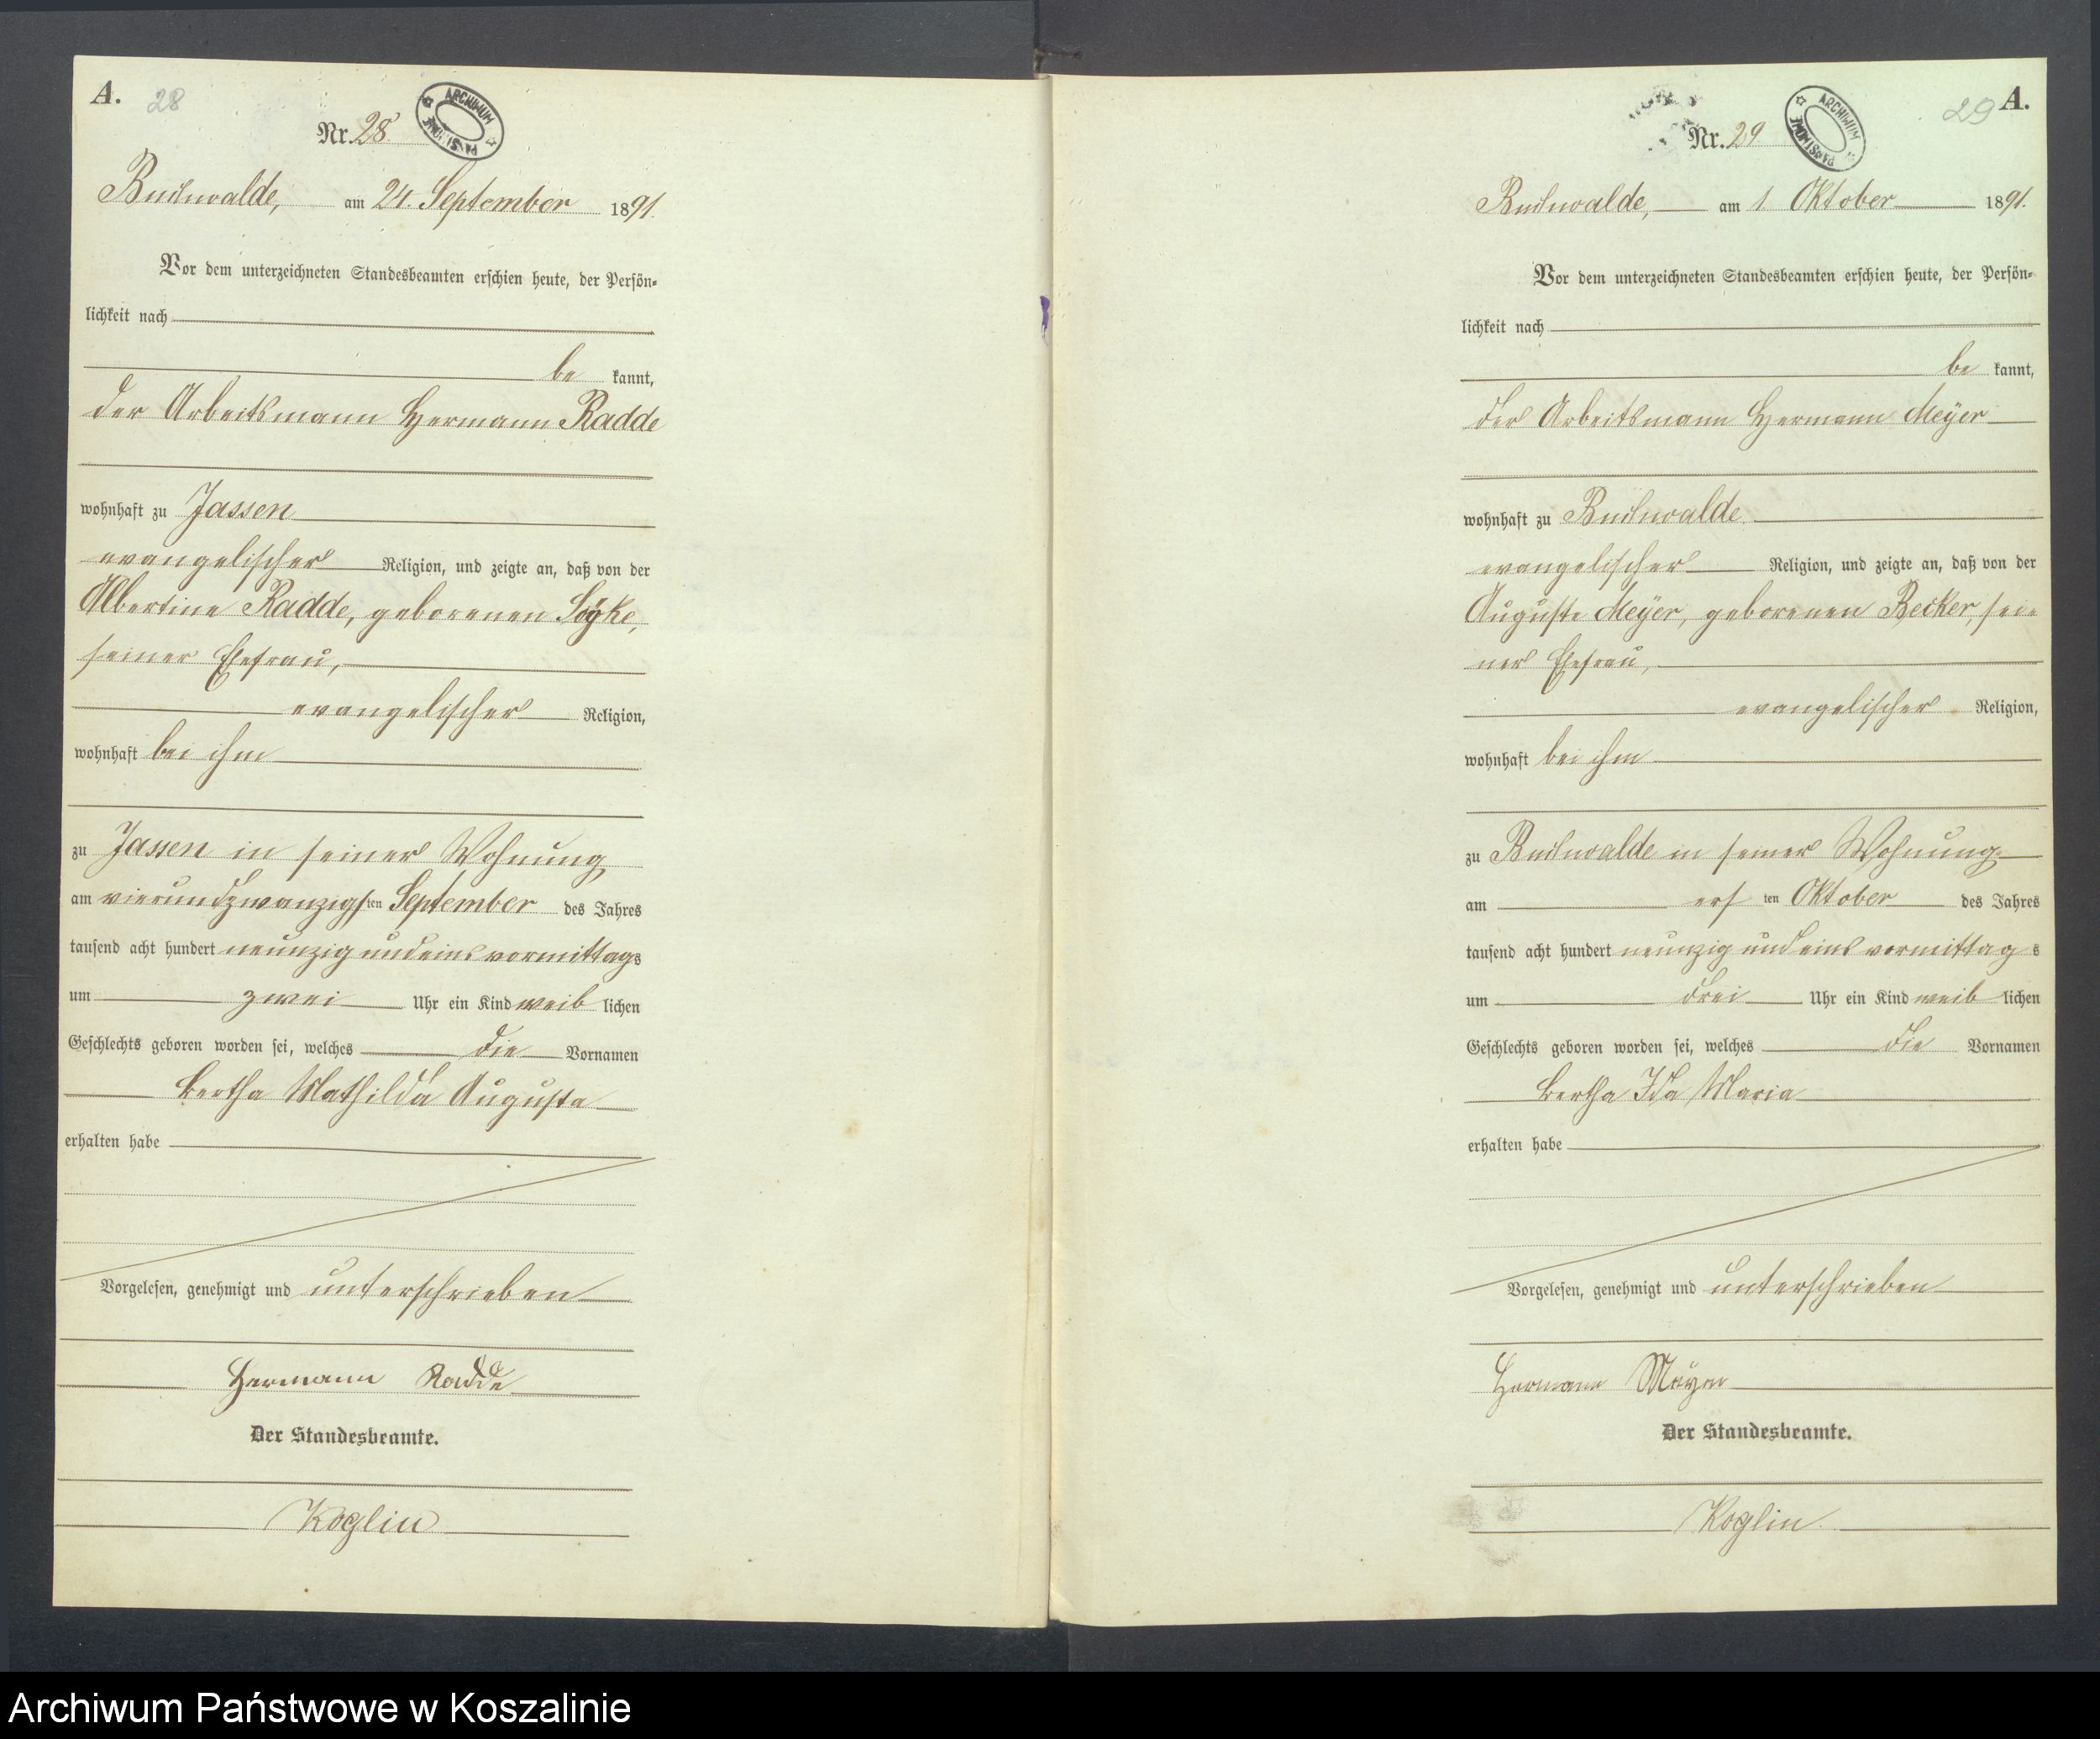 A. 28
Nr. 28
ARCHIWUM PAŃSTWOWE
Buchwalde, am 24. September 1891.
Vor dem unterzeichneten Standesbeamten erschien heute, der Persön-
lichkeit nach
be kannt,
der Arbeitsmann Hermann Radde
wohnhaft zu Jassen
evangelischer Religion, und zeigte an, daß von der
Albertine Radde, geborenen
seiner Ehefrau,
evangelischer Religion,
wohnhaft bei ihm
zu Jassen in seiner Wohnung
am vierundzwanzigsten September des Jahres
tausend acht hundert neunzig und eins vormittags
um zwei Uhr ein Kind weib lichen
Geschlechts geboren worden sei, welches die Vornamen
Bertha Mathilda Augusta
erhalten habe
Vorgelesen, genehmigt und unterschrieben
Hermann Radde
Der Standesbeamte.
Koglin
29 A.
Nr. 29
ARCHIWUM PAŃSTWOWE
Buchwalde, am 1 Oktober 1891.
Vor dem unterzeichneten Standesbeamten erschien heute, der Persön-
lichkeit nach
be kannt,
der Arbeitsmann Hermann Meÿer
wohnhaft zu Buchwalde
evangelischer Religion, und zeigte an, daß von der
Auguste Meÿer, geborenen Becker, sei-
ner Ehefrau,
evangelischer Religion,
wohnhaft bei ihm
zu Buchwalde in seiner Wohnung
am ers ten Oktober des Jahres
tausend acht hundert neunzig und eins vormittag s
um drei Uhr ein Kind weib lichen
Geschlechts geboren worden sei, welches die Vornamen
Bertha Ida Maria
erhalten habe
Vorgelesen, genehmigt und unterschrieben
Hermann Meÿer
Der Standesbeamte.
Koglin
Archiwum Państwowe w Koszalinie